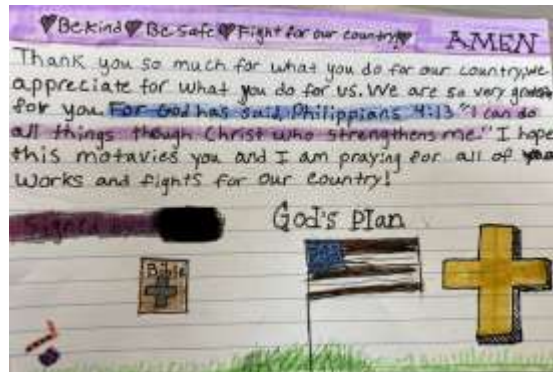 ♥Be kind♥Be Safe♥Fight for our country♥
AMEN
Thank you so much for what you do for our country, we
appreciate for what you do for us. We are so very grateful
for you. For God has said, Philippians 4:13 "I can do
all things though Christ who strengthens me." I hope
this motavies you and I am praying for all of you
works and fights for our country!
Signed by:
God's Plan
Bible